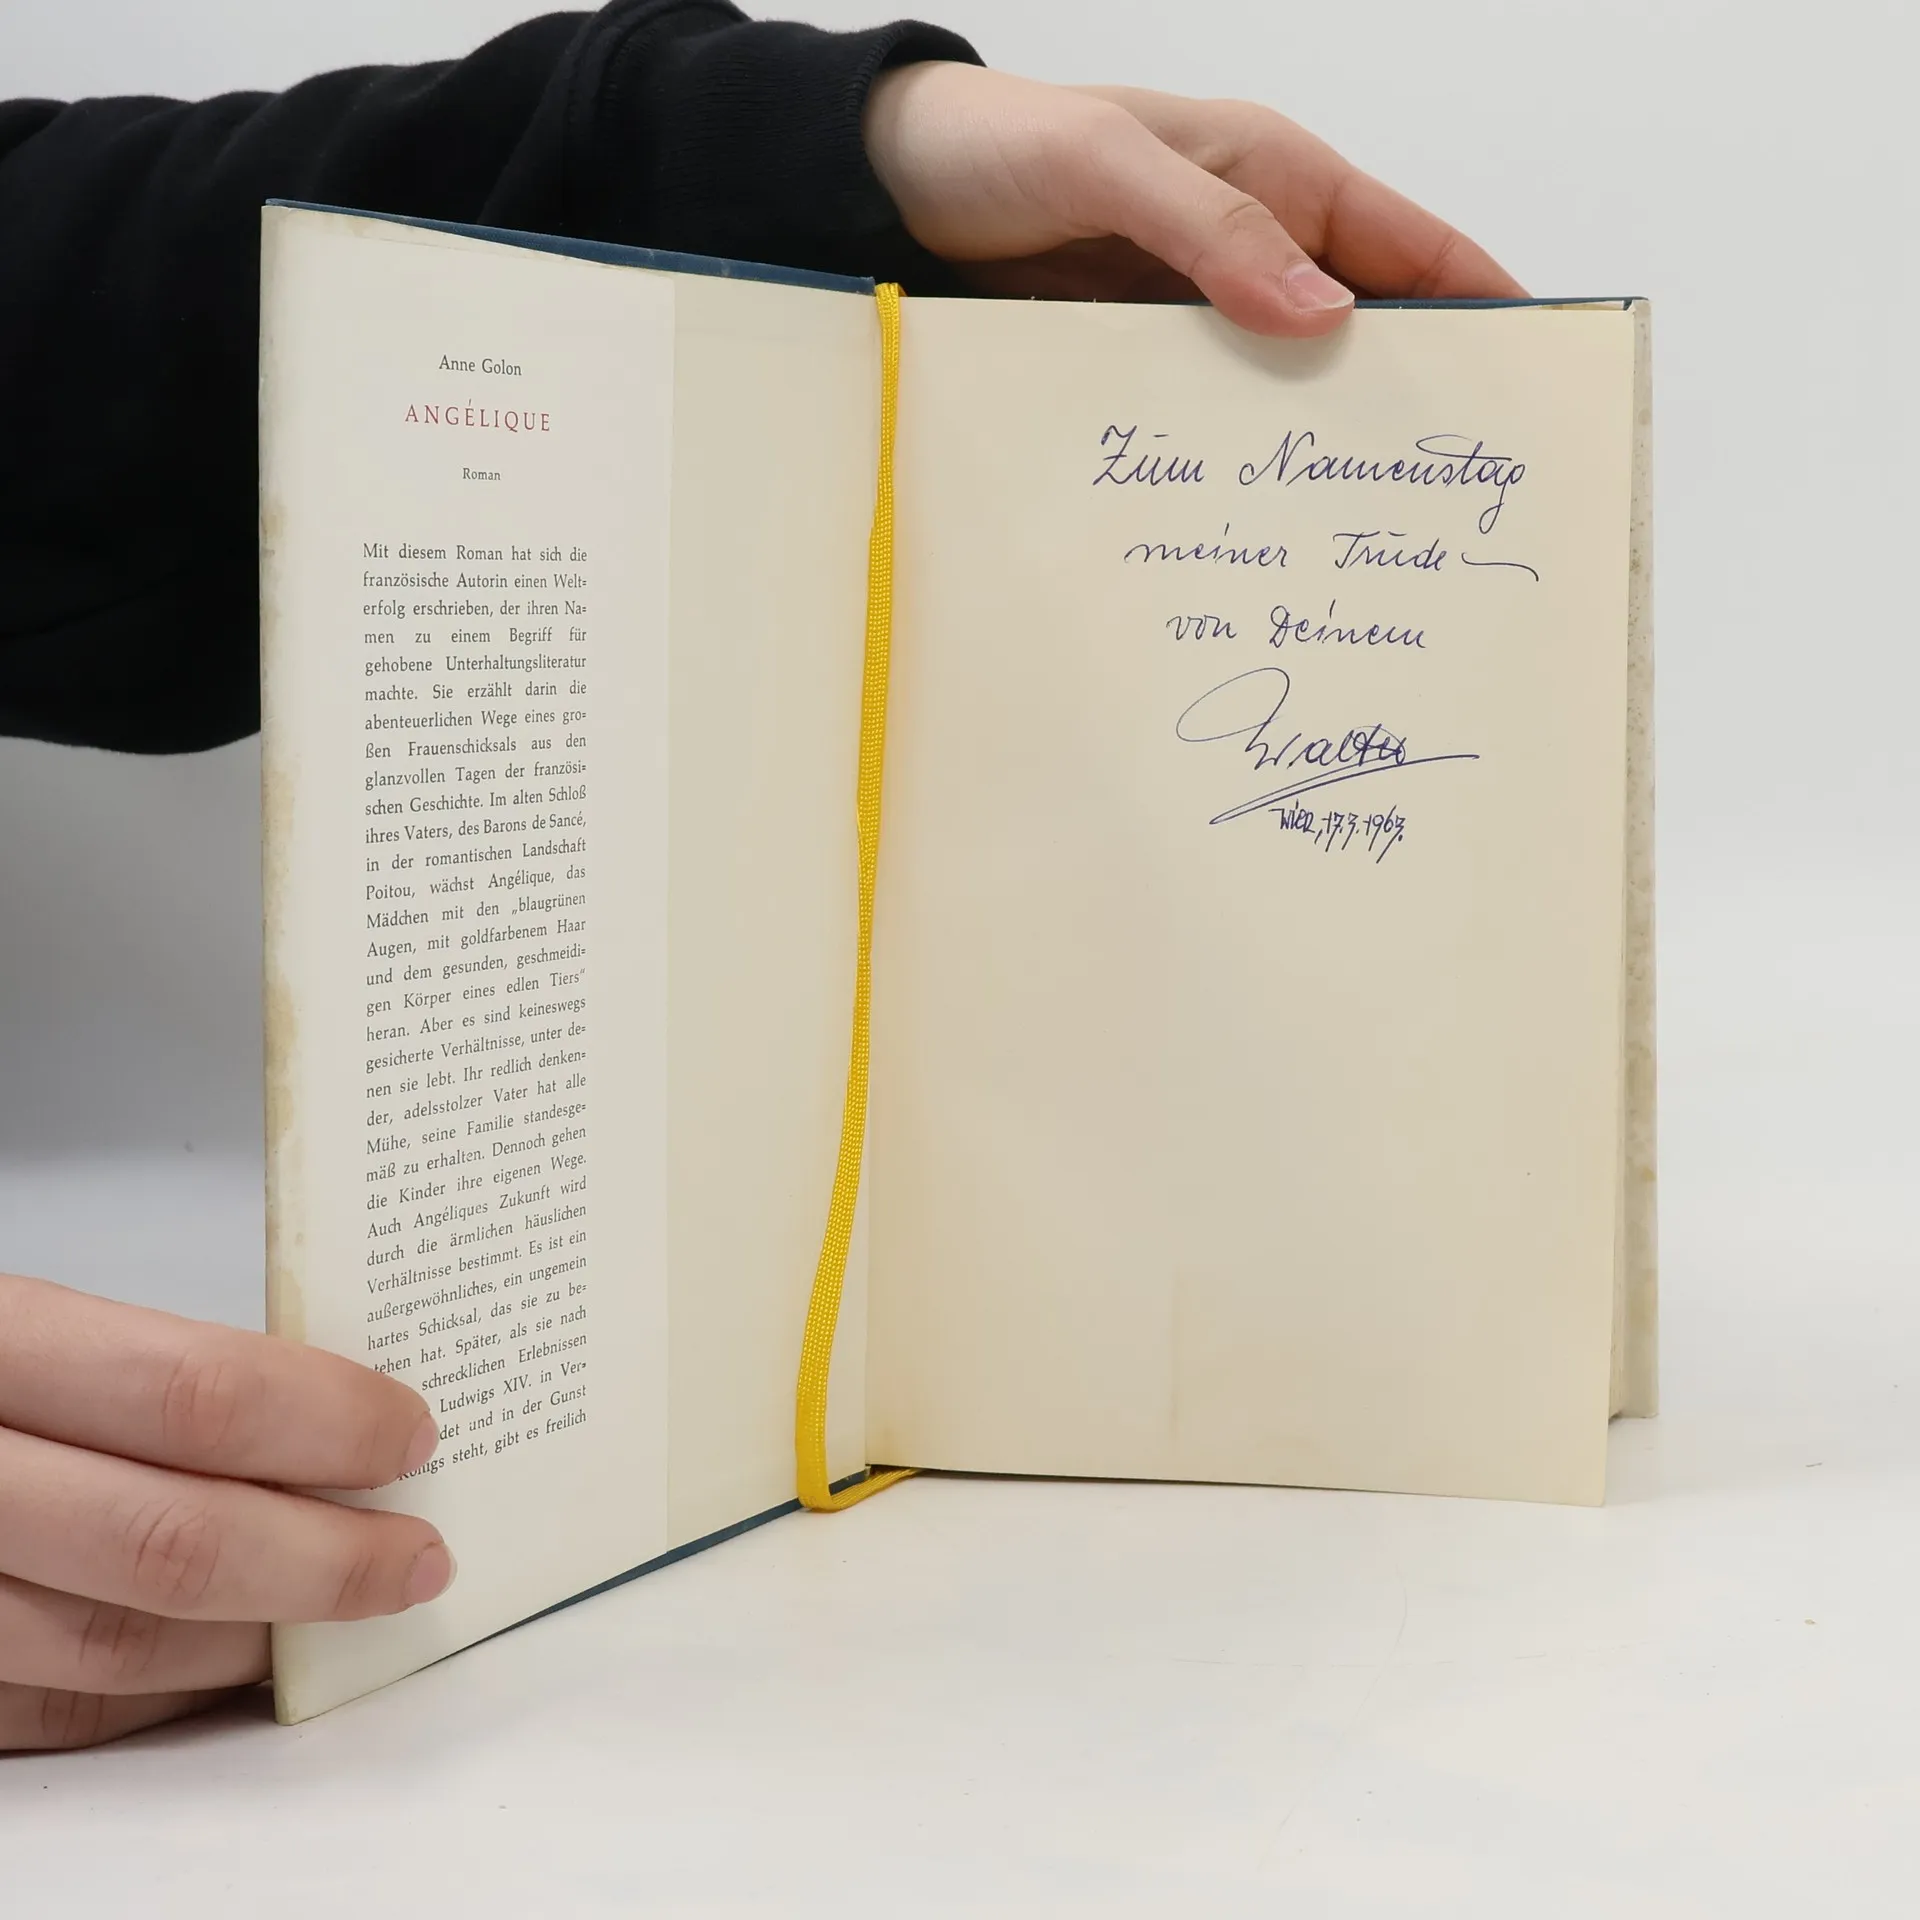 Anne Golon
ANGÉLIQUE
Roman
Mit diesem Roman hat sich die
französische Autorin einen Welt=
erfolg erschrieben, der ihren Na=
men zu einem Begriff für
gehobene Unterhaltungsliteratur
machte. Sie erzählt darin die
abenteuerlichen Wege eines gro=
ßen Frauenschicksals aus den
glanzvollen Tagen der französi=
schen Geschichte. Im alten Schloß
ihres Vaters, des Barons de Sancé,
in der romantischen Landschaft
Poitou, wächst Angélique, das
Mädchen mit den „blaugrünen
Augen, mit goldfarbenem Haar
und dem gesunden, geschmeidi=
gen Körper eines edlen Tiers“
heran. Aber es sind keineswegs
gesicherte Verhältnisse, unter de=
nen sie lebt. Ihr redlich denken=
der, adelsstolzer Vater hat alle
Mühe, seine Familie standesge=
mäß zu erhalten. Dennoch gehen
die Kinder ihre eigenen Wege.
Auch Angéliques Zukunft wird
durch die ärmlichen häuslichen
Verhältnisse bestimmt. Es ist ein
außergewöhnliches, ein ungemein
hartes Schicksal, das sie zu be=
stehen hat. Später, als sie nach
schrecklichen Erlebnissen
Ludwigs XIV. in Ver=
det und in der Gunst
Königs steht, gibt es freilich
Zum Namenstag
meiner Trude
von Deinem
Walter
Wien, 17.3.1967.